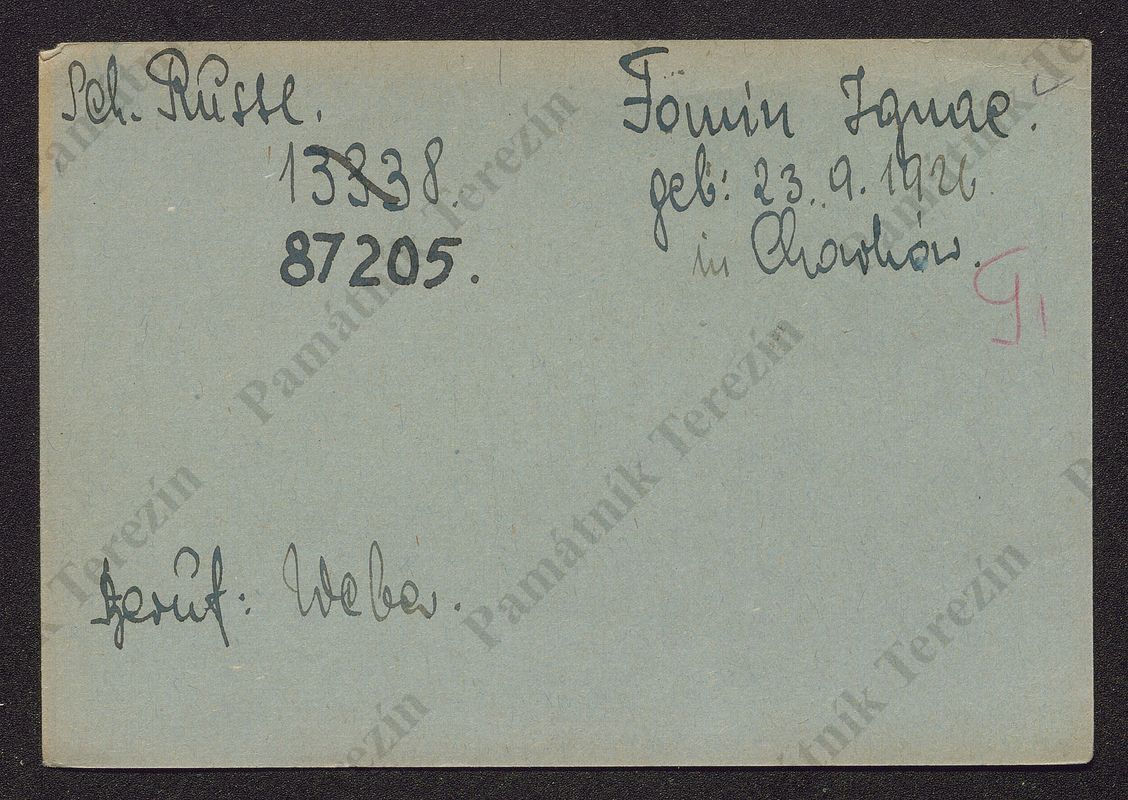 Sch. Russe.
Fomin Ignac.
13338.
geb: 23. 9. 1926
87205.
in Charków.
Beruf: Weber.
Památník Terezín
Památník Terezín
Památník Terezín
Památník Terezín